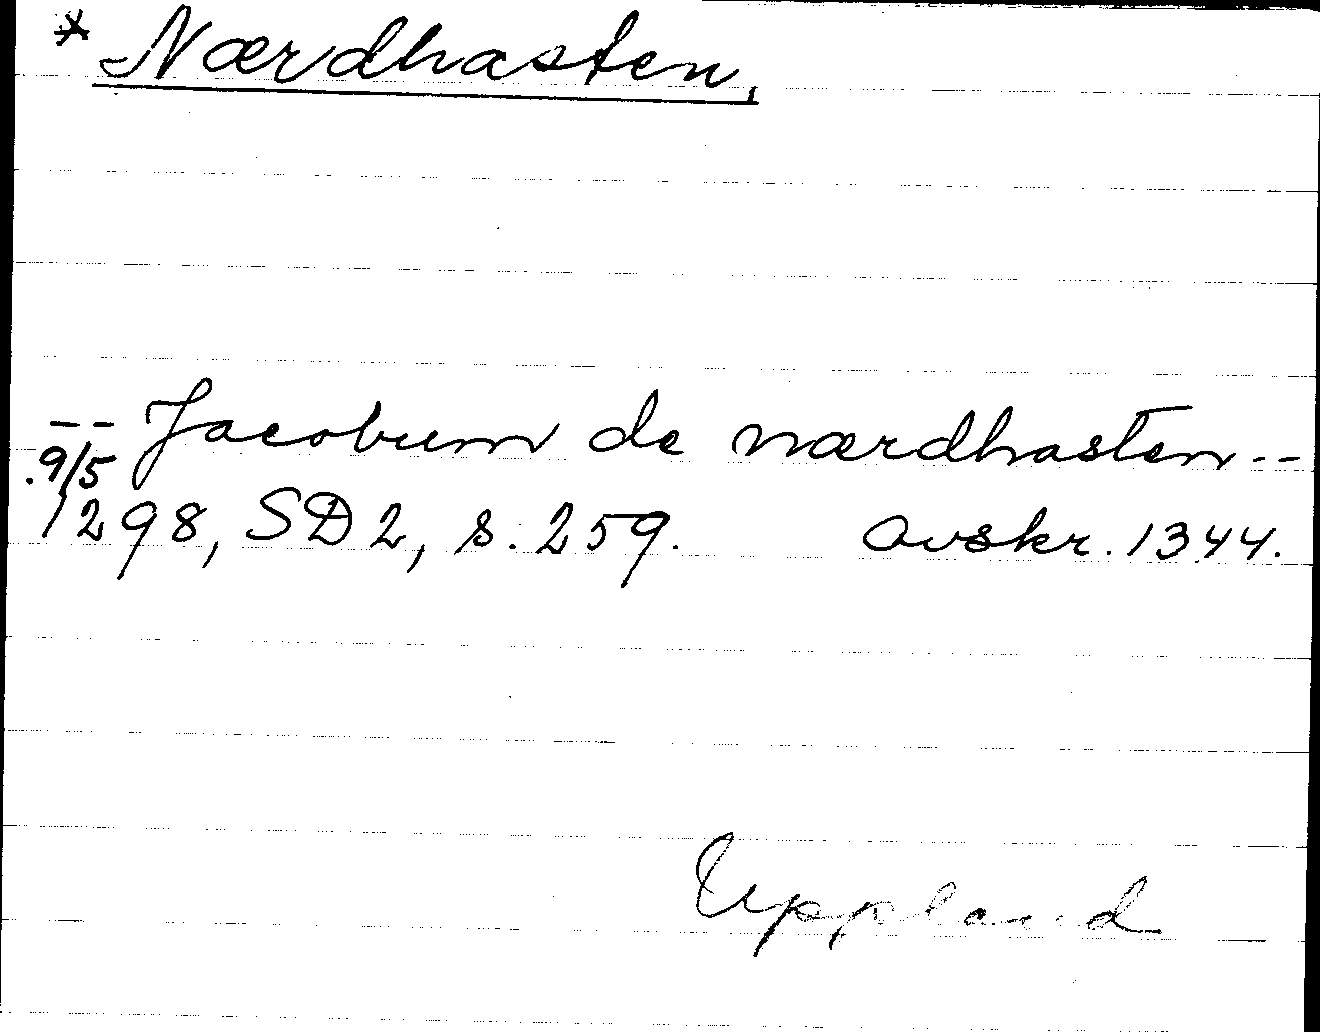 * Nærdhasten,
-- Jacobum de nærdhasten --
.9/5
1298, SD2, s. 259. avskr. 1344.
Uppland